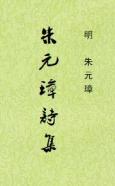 明 朱元璋
朱元璋詩集